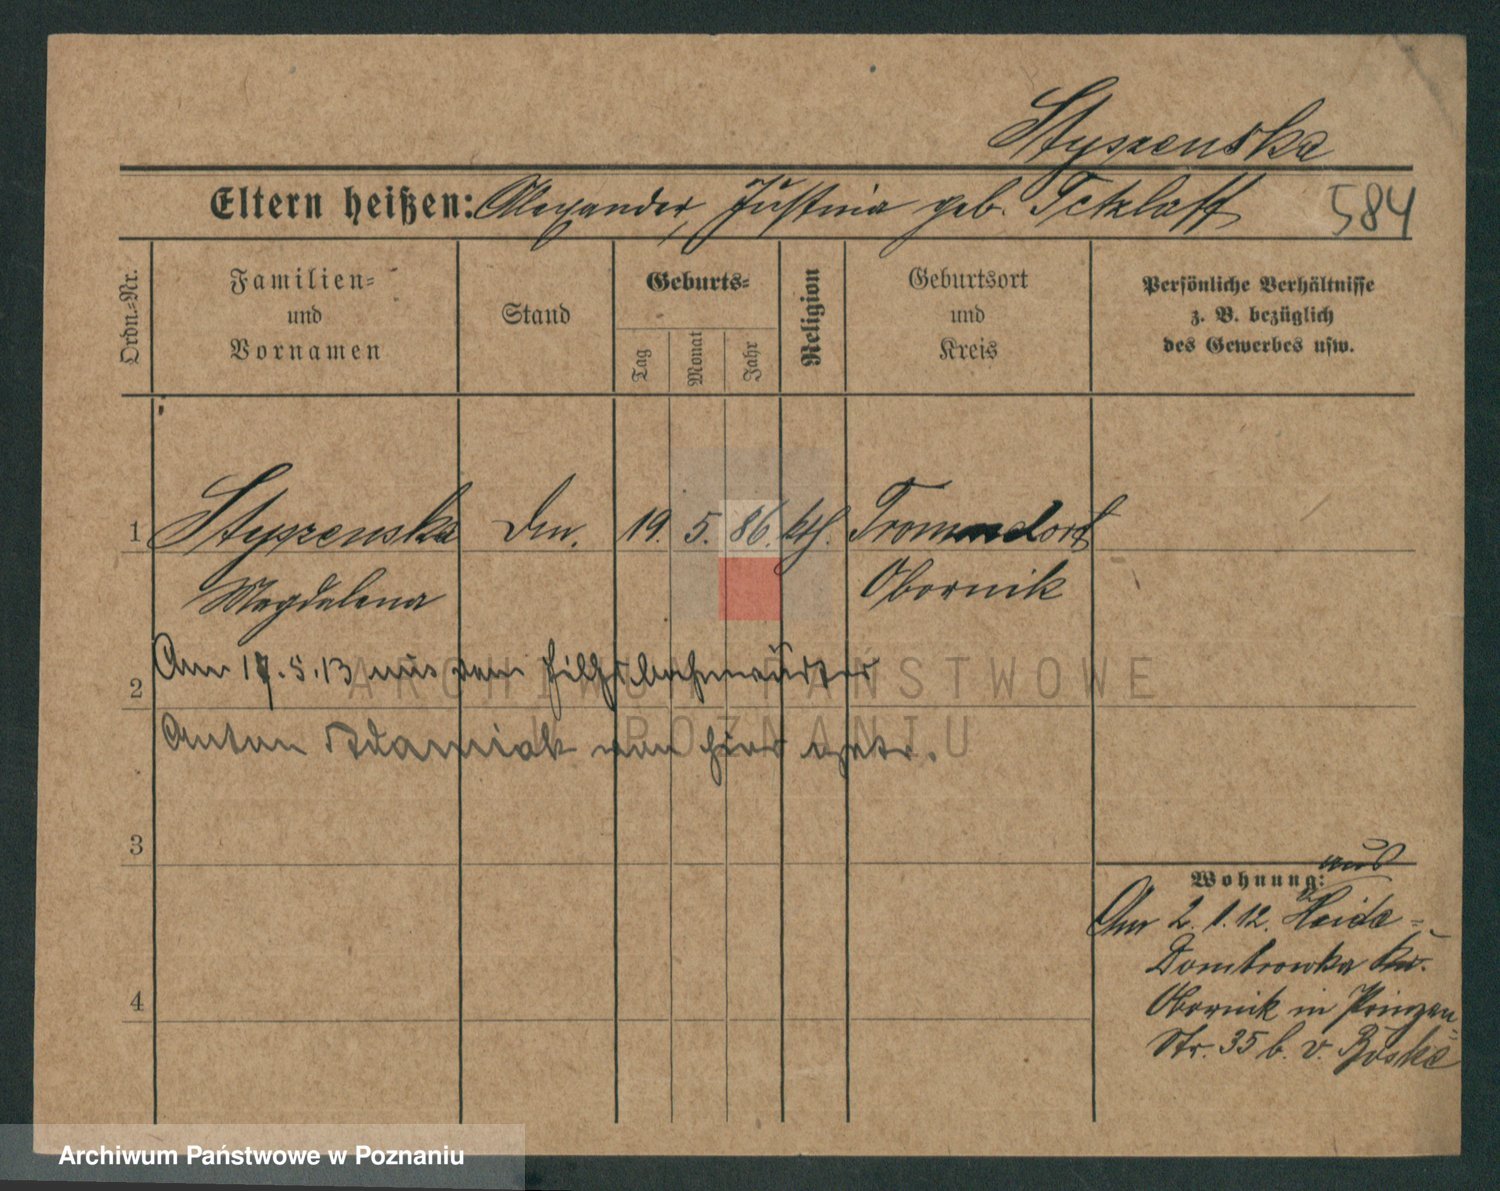 Styszenska
Eltern heißen: Alexander, Justina geb. Tetzlaff
584
Ordn.-Nr.
Familien-
und
Vornamen
Stand
Geburts-
Tag
Monat
Jahr
Religion
Geburtsort
und
Kreis
Persönliche Verhältnisse
z. B. bezüglich
des Gewerbes usw.
1 Styszenska 19. 5. 86. kth. Trommdorf
Magdalena Obornik
2 Am 17.5.13 aus von Hilfsbahnwärter
Anton Adamiak von hier
3
4
Wohnung: aus
Am 2. 1. 12. Heide-
Dombrowka Kr.
Obornik in Prinzen-
Str. 35 b. v.
ARCHIWUM PAŃSTWOWE
W POZNANIU
Archiwum Państwowe w Poznaniu